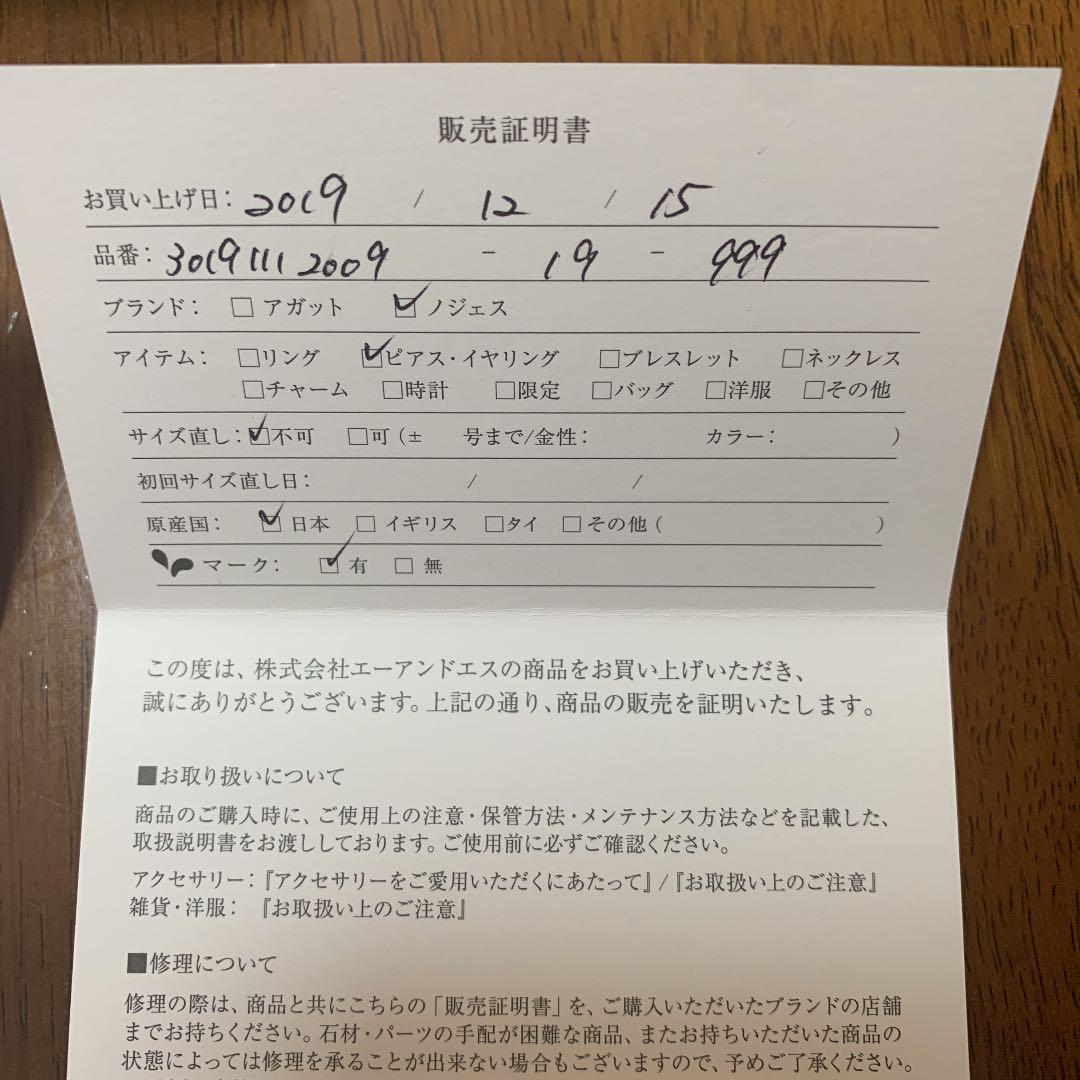 販売証明書
お買い上げ日: 2019 / 12 / 15
品番: 30191112009 - 19 - 999
ブランド: □ アガット ☑ ノジェス
アイテム: □リング ☑ピアス・イヤリング □ブレスレット □ネックレス
□チャーム □時計 □限定 □バッグ □洋服 □その他
サイズ直し: ☑不可 □可 (± 号まで/金性: カラー: )
初回サイズ直し日: / /
原産国: ☑ 日本 □ イギリス □タイ □ その他 ( )
マーク: ☑ 有 □ 無
この度は、株式会社エーアンドエスの商品をお買い上げいただき、
誠にありがとうございます。上記の通り、商品の販売を証明いたします。
■お取り扱いについて
商品のご購入時に、ご使用上の注意・保管方法・メンテナンス方法などを記載した、
取扱説明書をお渡ししております。ご使用前に必ずご確認ください。
アクセサリー:『アクセサリーをご愛用いただくにあたって』/『お取扱い上のご注意』
雑貨・洋服: 『お取扱い上のご注意』
■修理について
修理の際は、商品と共にこちらの「販売証明書」を、ご購入いただいたブランドの店舗
までお持ちください。石材・パーツの手配が困難な商品、またお持ちいただいた商品の
状態によっては修理を承ることが出来ない場合もございますので、予めご了承ください。